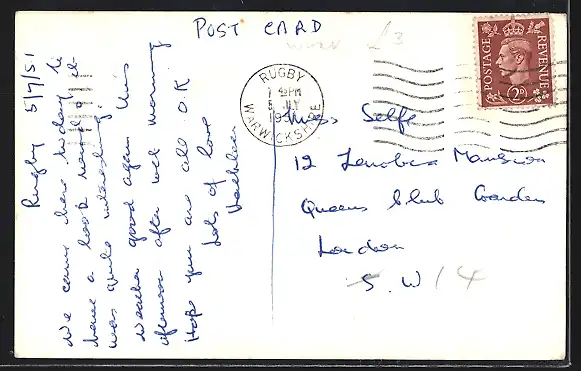 POST CARD
£3
RUGBY
5 JLY
WARWICKSHIRE
POSTAGE
REVENUE
2D
Rugby 5/7/51
We came here today to
have a look round & it
was quite interesting.
Weather good again this
afternoon after wet morning
Hope you are all O.K
Lots of love
Kathleen
Miss Selfe
12 Zenobia Mansion
Queens Club Gardens
London
S. W 14